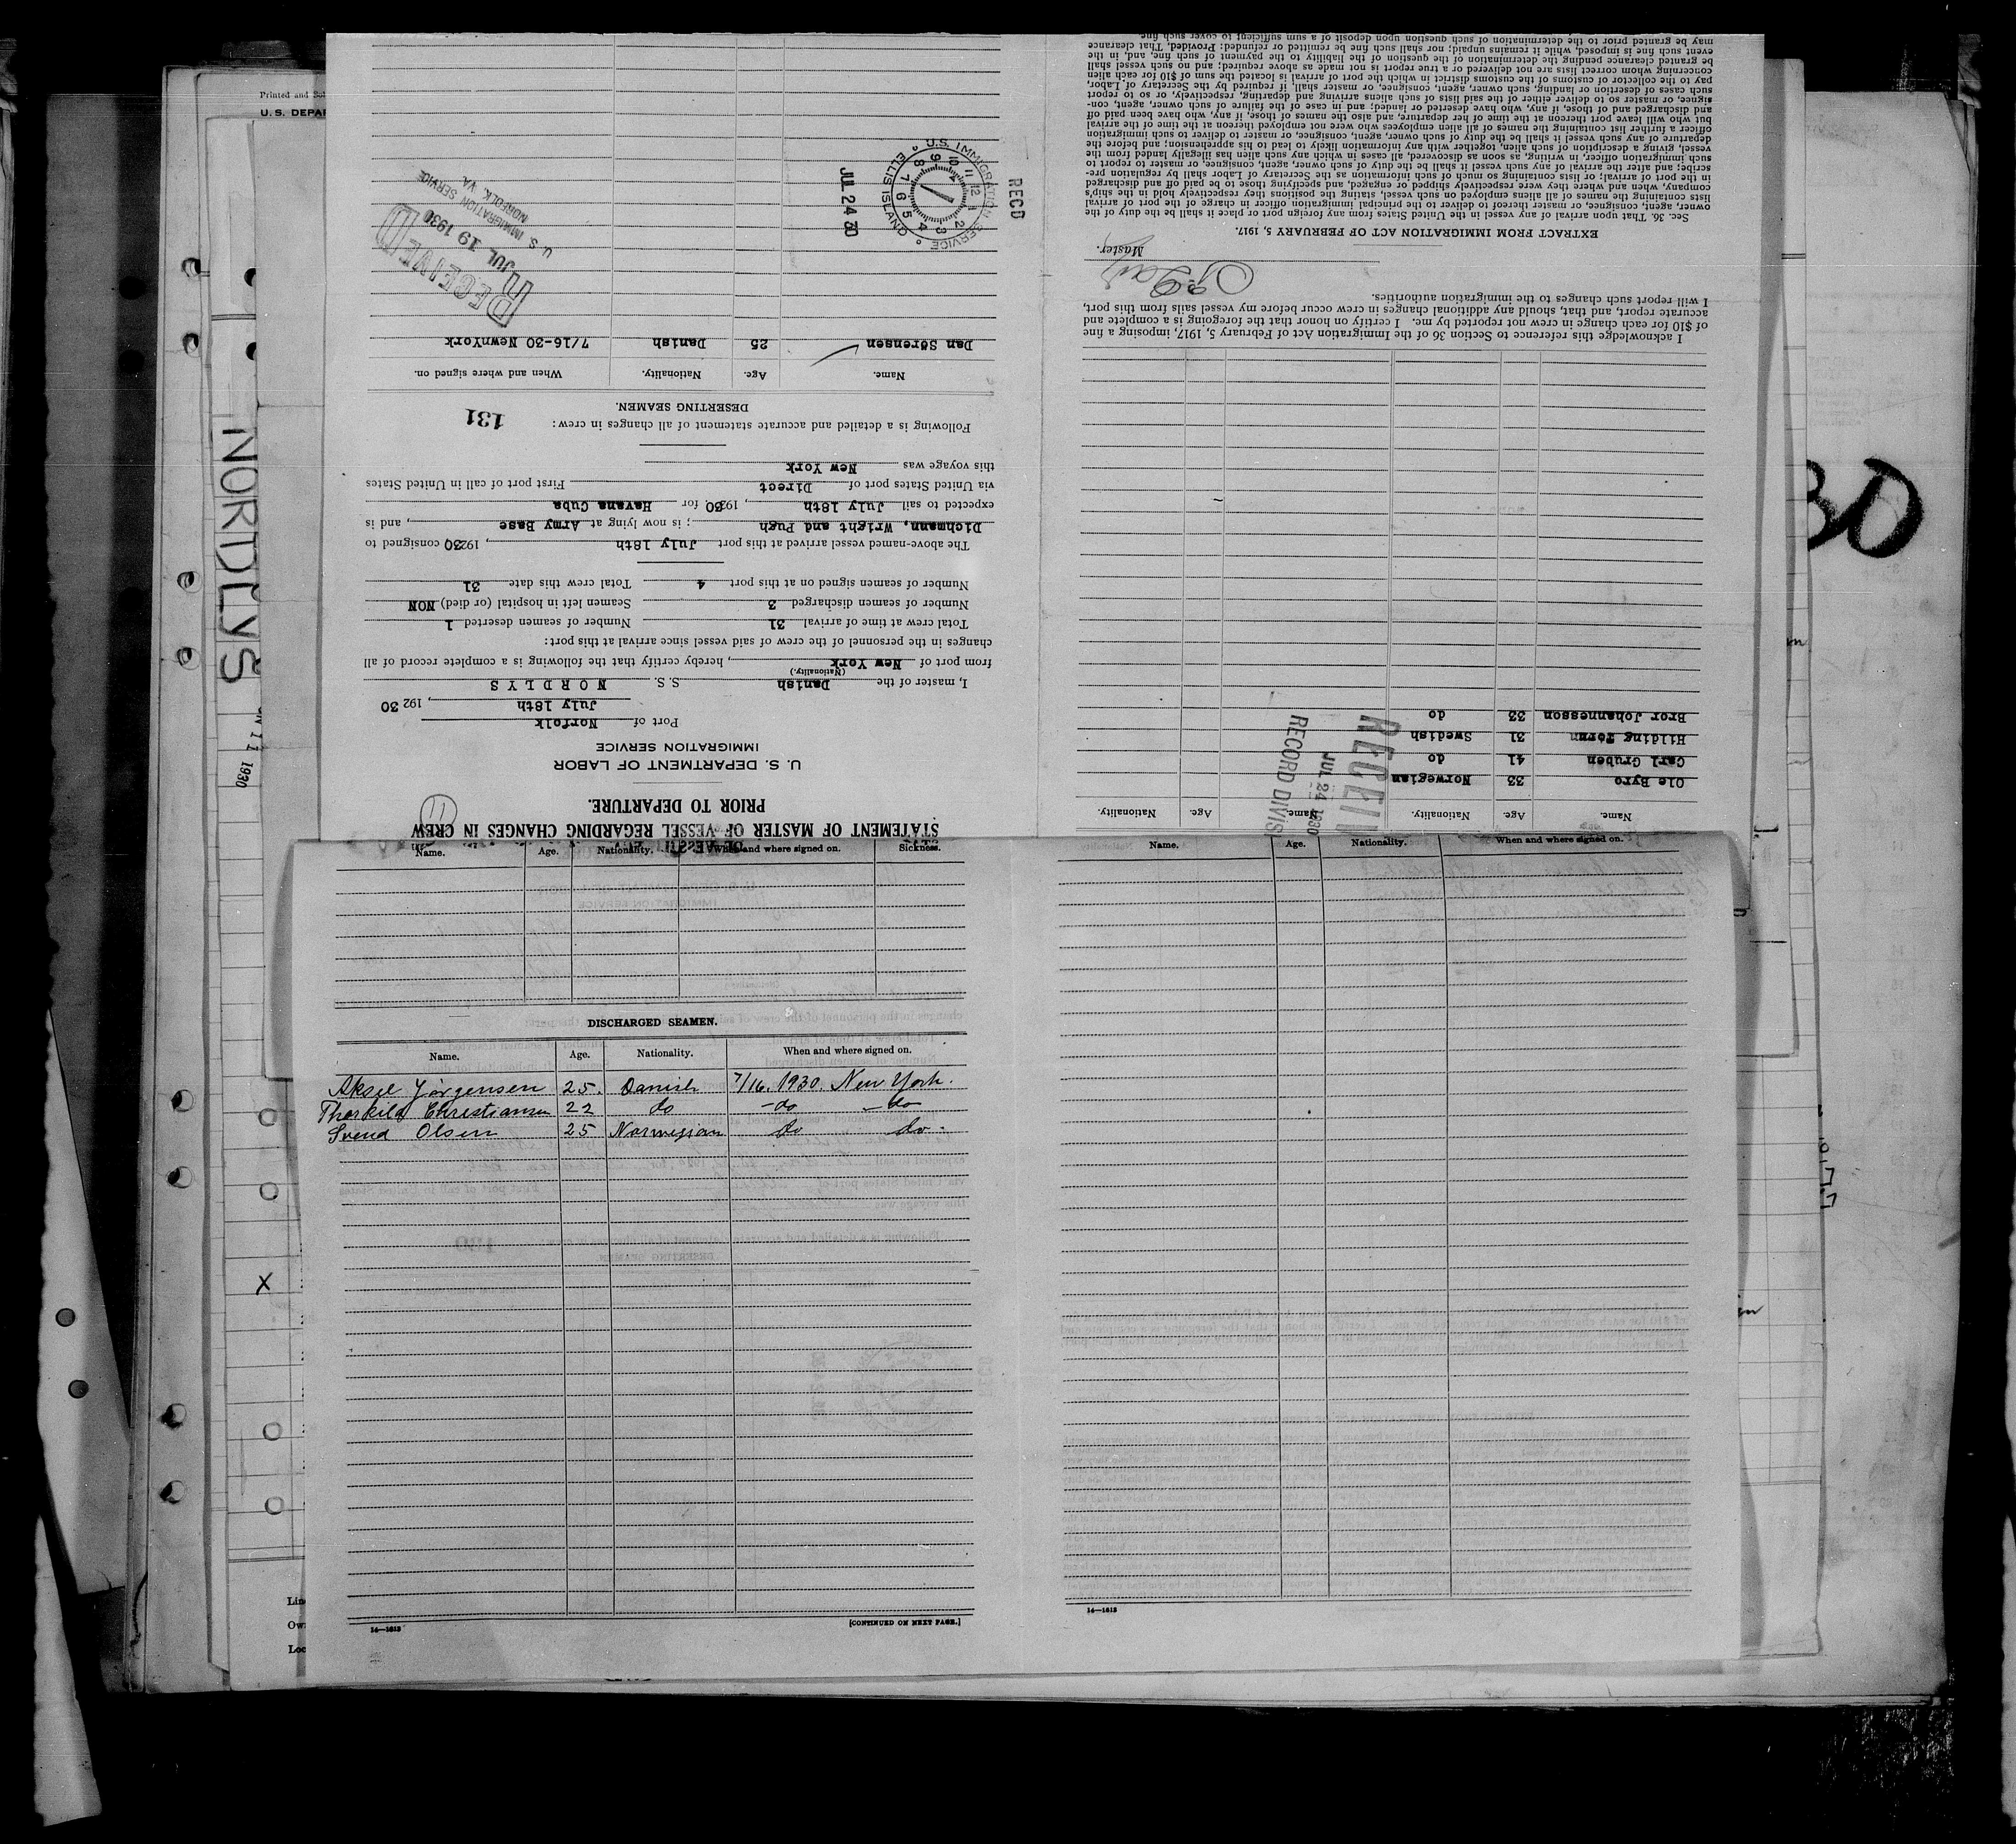 Printed and Sol
U.S. DEPAR
NORDLYS
1930
30
STATEMENT OF MASTER OF VESSEL REGARDING CHANGES IN CREW
PRIOR TO DEPARTURE.
11
U. S. DEPARTMENT OF LABOR
IMMIGRATION SERVICE
Port of Norfolk
July 18th, 192 30
I, master of the Danish S. S. N O R D L Y S
(Nationality.)
from port of New York, hereby certify that the following is a complete record of all
changes in the personnel of the crew of said vessel since arrival at this port:
Total crew at time of arrival 31 Number of seamen deserted 1
Number of seamen discharged 3 Seamen left in hospital (or died) NON
Number of seamen signed on at this port 4 Total crew this date 31
The above-named vessel arrived at this port July 18th, 192 30 consigned to
Dichmann, Wright and Pugh; is now lying at Army Base, and is
expected to sail July 18th, 1930 for Havana Cuba
via United States port of Direct First port of call in United States
this voyage was New York
Following is a detailed and accurate statement of all changes in crew:
131
DESERTING SEAMEN.
Name. Age. Nationality. When and where signed on.
Dan Sörensen 25 Danish 7/16-30 NewnYork
RECEIVED
JUL 19 1930
U. S. IMMIGRATION SERVICE
NORFOLK, VA.
RECD
U.S. IMMIGRATION SERVICE
ELLIS ISLAND
12 1 2 3 4 5 6 7 8 9 10 11
JUL 24 30
Name. Age. Nationality. Name. Age. Nationality.
Ole Byro 33 Norwegian
Carl Gruben 41 do
Hilding Torun 31 Swedish
Bror Johannesson 33 do
RECEIV
JUL 24 1930
RECORD DIVIS
I acknowledge this reference to Section 36 of the Immigration Act of February 5, 1917, imposing a fine
of $10 for each change in crew not reported by me. I certify on honor that the foregoing is a complete and
accurate report, and that, should any additional changes in crew occur before my vessel sails from this port,
I will report such changes to the immigration authorities.
Master.
EXTRACT FROM IMMIGRATION ACT OF FEBRUARY 5, 1917.
Sec. 36. That upon arrival of any vessel in the United States from any foreign port or place it shall be the duty of the
owner, agent, consignee, or master thereof to deliver to the principal immigration officer in charge of the port of arrival
lists containing the names of all aliens employed on such vessel, stating the positions they respectively hold in the ship's
company, when and where they were respectively shipped or engaged, and specifying those to be paid off and discharged
in the port of arrival; or lists containing so much of such information as the Secretary of Labor shall by regulation pre-
scribe; and after the arrival of any such vessel it shall be the duty of such owner, agent, consignee, or master to report to
such immigration officer, in writing, as soon as discovered, all cases in which any such alien has illegally landed from the
vessel, giving a description of such alien, together with any information likely to lead to his apprehension; and before the
departure of any such vessel it shall be the duty of such owner, agent, consignee, or master to deliver to such immigration
officer a further list containing the names of all alien employees who were not employed thereon at the time of the arrival
but who will leave port thereon at the time of her departure, and also the names of those, if any, who have been paid off
and discharged and of those, if any, who have deserted or landed; and in case of the failure of such owner, agent, con-
signee, or master so to deliver either of the said lists of such aliens arriving and departing, respectively, or so to report
such cases of desertion or landing, such owner, agent, consignee, or master shall, if required by the Secretary of Labor,
pay to the collector of customs of the customs district in which the port of arrival is located the sum of $10 for each alien
concerning whom correct lists are not delivered or a true report is not made as above required; and no such vessel shall
be granted clearance pending the determination of the question of the liability to the payment of such fine, and, in the
event such fine is imposed, while it remains unpaid; nor shall such fine be remitted or refunded: Provided, That clearance
may be granted prior to the determination of such question upon deposit of a sum sufficient to cover such fine.
Name. Age. Nationality. When and where signed on. Sickness.
DISCHARGED SEAMEN.
Name. Age. Nationality. When and where signed on.
Aksel Jörgensen 25. Danish 7/16. 1930. New York.
Thorkild Christiansen 22 do -do -do
Svend Olsen 25 Norwegian do do.
16—1613
[CONTINUED ON NEXT PAGE.]
Name. Age. Nationality. When and where signed on.
16—1613
X
Lin
Ow
Loc